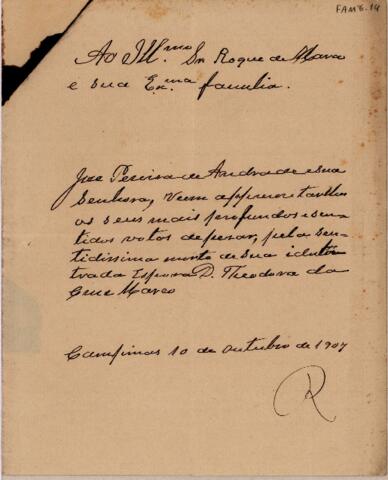 FAM6.14
Ao Ill.mo Snr Roque de Marco
e sua Ex.ma familia.
Jose Pereira de Andrade e sua
Senhora, Vem appresentar lhes
os seus mais profundos e sen-
tidos votos de pesar, pela sen-
tidissima morte de sua idola-
trada Espoza D. Theodora da
Cruz Marco
Campinas 10 de outubro de 1907
R